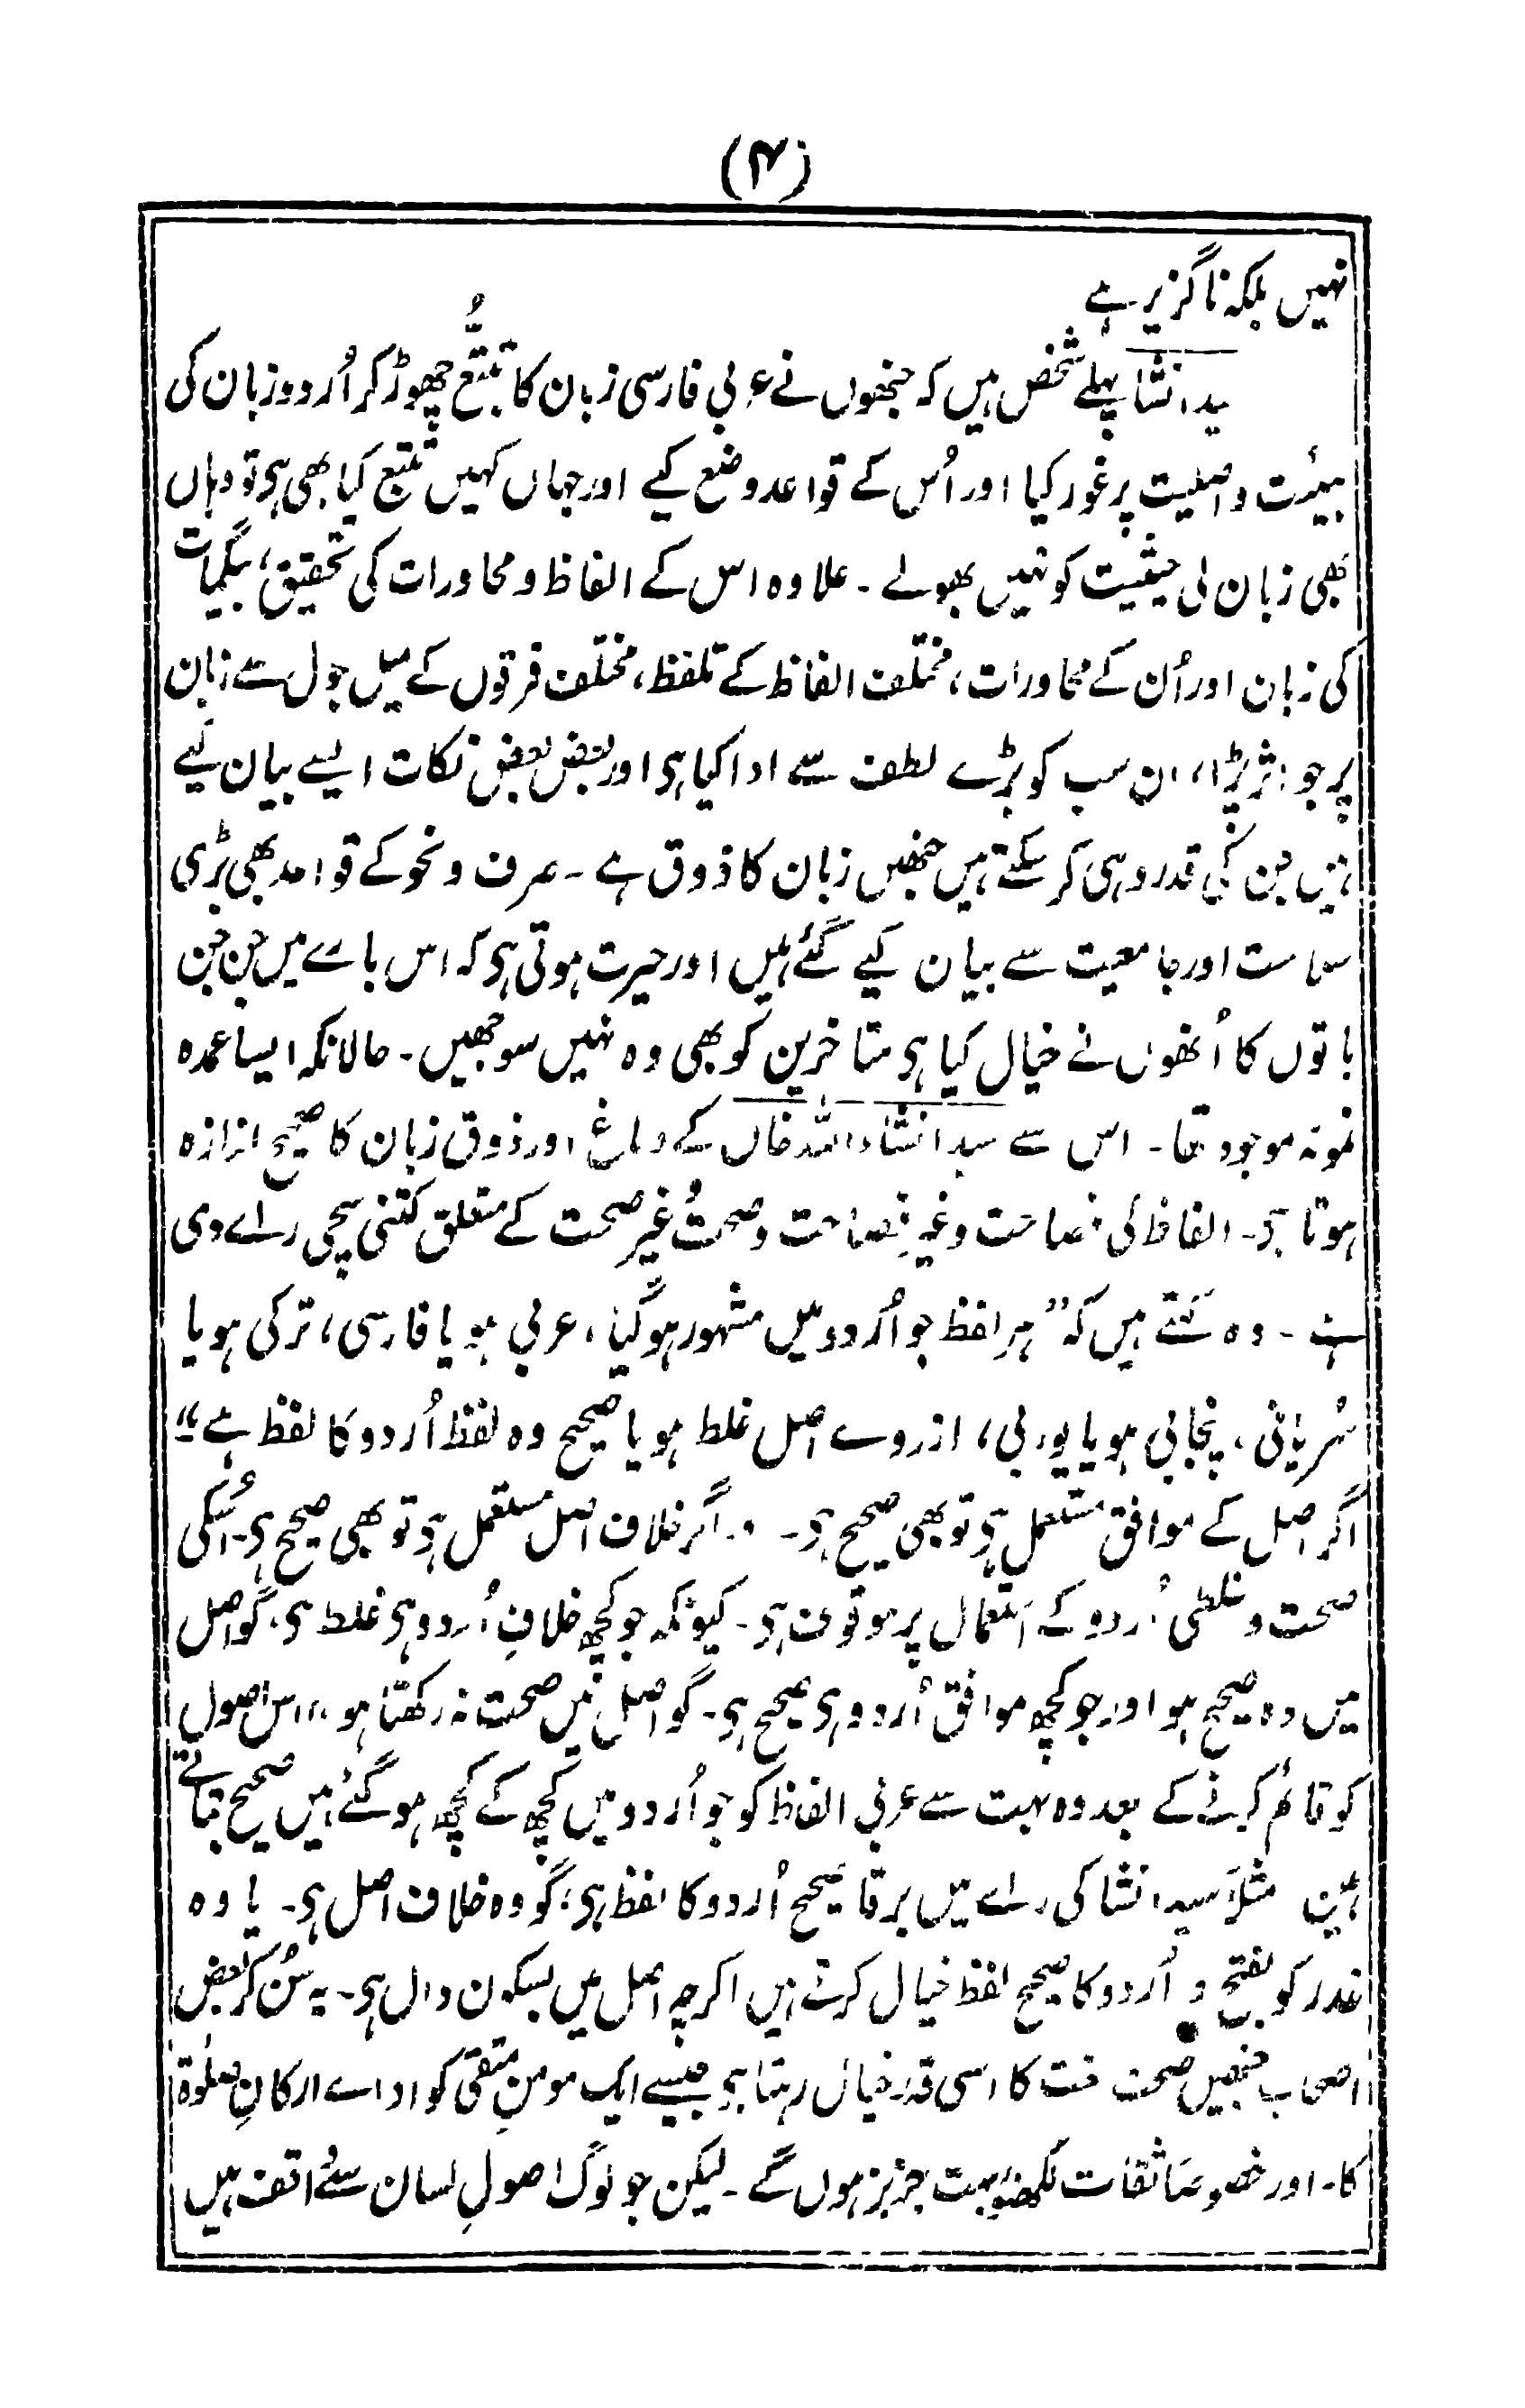 (۴)
نہیں بلکہ ناگزیر ہے
سید انشا پہلے شخص ہیں کہ جنھوں نے عربی فارسی زبان کا تتبُّع چھوڑ کر اُردو زبان کی
ہیئت و اصلیت پر غور کیا اور اُس کے قواعد وضع کیے اور جہاں کہیں تتبع کیا بھی ہی تو وہاں
بھی زبان کی حیثیت کو نہیں بھولے ۔ علاوہ اس کے الفاظ و محاورات کی تحقیق، بیگمات
کی زبان اور اُن کے محاورات، مختلف الفاظ کے تلفظ، مختلف فرقوں کے میل جول سے زبان
پر جو اثر پڑا، ان سب کو بڑے لطف سے ادا کیا ہی اور بعض بعض نکات ایسے بیان کیے
ہیں جن کی قدر وہی کر سکتے ہیں جنھیں زبان کا ذوق ہے ۔ صرف و نحو کے قواعد بھی بڑی
سلاست اور جامعیت سے بیان کیے گئے ہیں اور حیرت ہوتی ہی کہ اس بارے میں جن جن
باتوں کا اُنھوں نے خیال کیا ہی متاخرین کو بھی وہ نہیں سوجھیں ۔ حالانکہ ایسا عمدہ
نمونہ موجود تھا ۔ اس سے سید انشاء اللہ خاں کے دماغ اور ذوق زبان کا صحیح اندازہ
ہوتا ہی ۔ الفاظ کی فصاحت و غیر فصاحت و صحت و غیر صحت کے متعلق کتنی سچی راے دی
ہے ۔ وہ کہتے ہیں کہ ”ہر لفظ جو اُردو میں مشہور ہو گیا، عربی ہو یا فارسی، ترکی ہو یا
سُریانی، پنجابی ہو یا پوربی، از روے اصل غلط ہو یا صحیح وہ لفظ اُردو کا لفظ ہے“
اگر اصل کے موافق مستعمل ہی تو بھی صحیح ہی ۔ اور اگر خلاف اصل مستعمل ہی تو بھی صحیح ہی ۔ اُسکی
صحت و غلطی اُردو کے استعمال پر موقوف ہی ۔ کیونکہ جو کچھ خلافِ اُردو ہی غلط ہی، گو اصل
میں وہ صحیح ہو اور جو کچھ موافق اُردو ہی صحیح ہی ۔ گو اصل میں صحت نہ رکھتا ہو،، اس اصول
کو قائم کرنے کے بعد وہ بہت سے عربی الفاظ کو جو اُردو میں کچھ کے کچھ ہو گئے ہیں صحیح بتاتے
ہیں مثلاً سید انشا کی راے میں برقا صحیح اُردو کا لفظ ہی، گو وہ خلاف اصل ہی ۔ یا وہ
غدر کو بفتح و اُردو کا صحیح لفظ خیال کرتے ہیں اگرچہ اصل میں بسکون دال ہی ۔ یہ سُن کر بعض
اصحاب جنھیں صحت کا اسی قدر خیال رہتا ہی جیسے ایک مومنِ متقی کو اداے ارکانِ صلوٰۃ
کا ۔ اور خصوصاً ثقات لکھنؤ بہت جزبز ہوں گے ۔ لیکن جو لوگ اصولِ لسان سے واقف ہیں